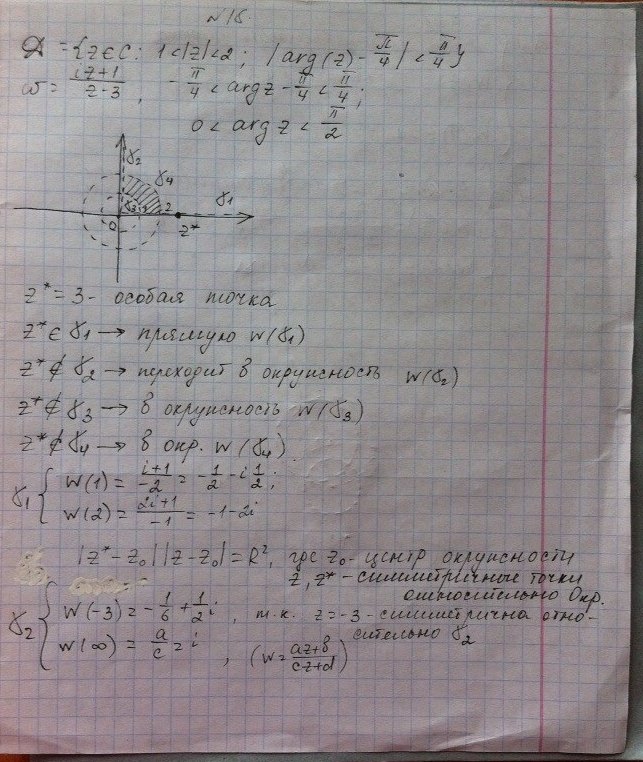 N 18.
D = {z∈C: 1<|z|<2; |arg(z) - π/4| < π/4}
ω = (iz+1)/(z-3), -π/4 < arg z - π/4 < π/4;
0 < arg z < π/2
γ2
γ4
γ3
γ1
0 1 2 z*
z* = 3 - особая точка
z* ∈ γ1 → прямую w(γ1)
z* ∉ γ2 → переходит в окружность w(γ2)
z* ∉ γ3 → в окружность w(γ3)
z* ∉ γ4 → в окр. w(γ4)
γ1 { w(1) = (i+1)/(-2) = -1/2 - i 1/2;
w(2) = (2i+1)/(-1) = -1-2i
|z* - z0| |z - z0| = R², где z0 - центр окружности
z, z* - симметричные точки
относительно окр.
γ2 { w(-3) = -1/6 + 1/2 i, т.к. z=-3 - симметрична отно-
сительно γ2
w(∞) = a/c = i, (w = (az+b)/(cz+d))